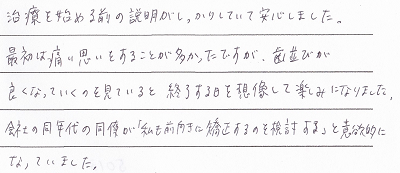 治療を始める前の説明がしっかりしていて安心しました。
最初は痛い思いをすることが多かったですが、歯並びが
良くなっていくのを見ていると終了する日を想像して楽しみになりました。
会社の同年代の同僚が「私も前向きに矯正するのを検討する」と意欲的に
なっていました。